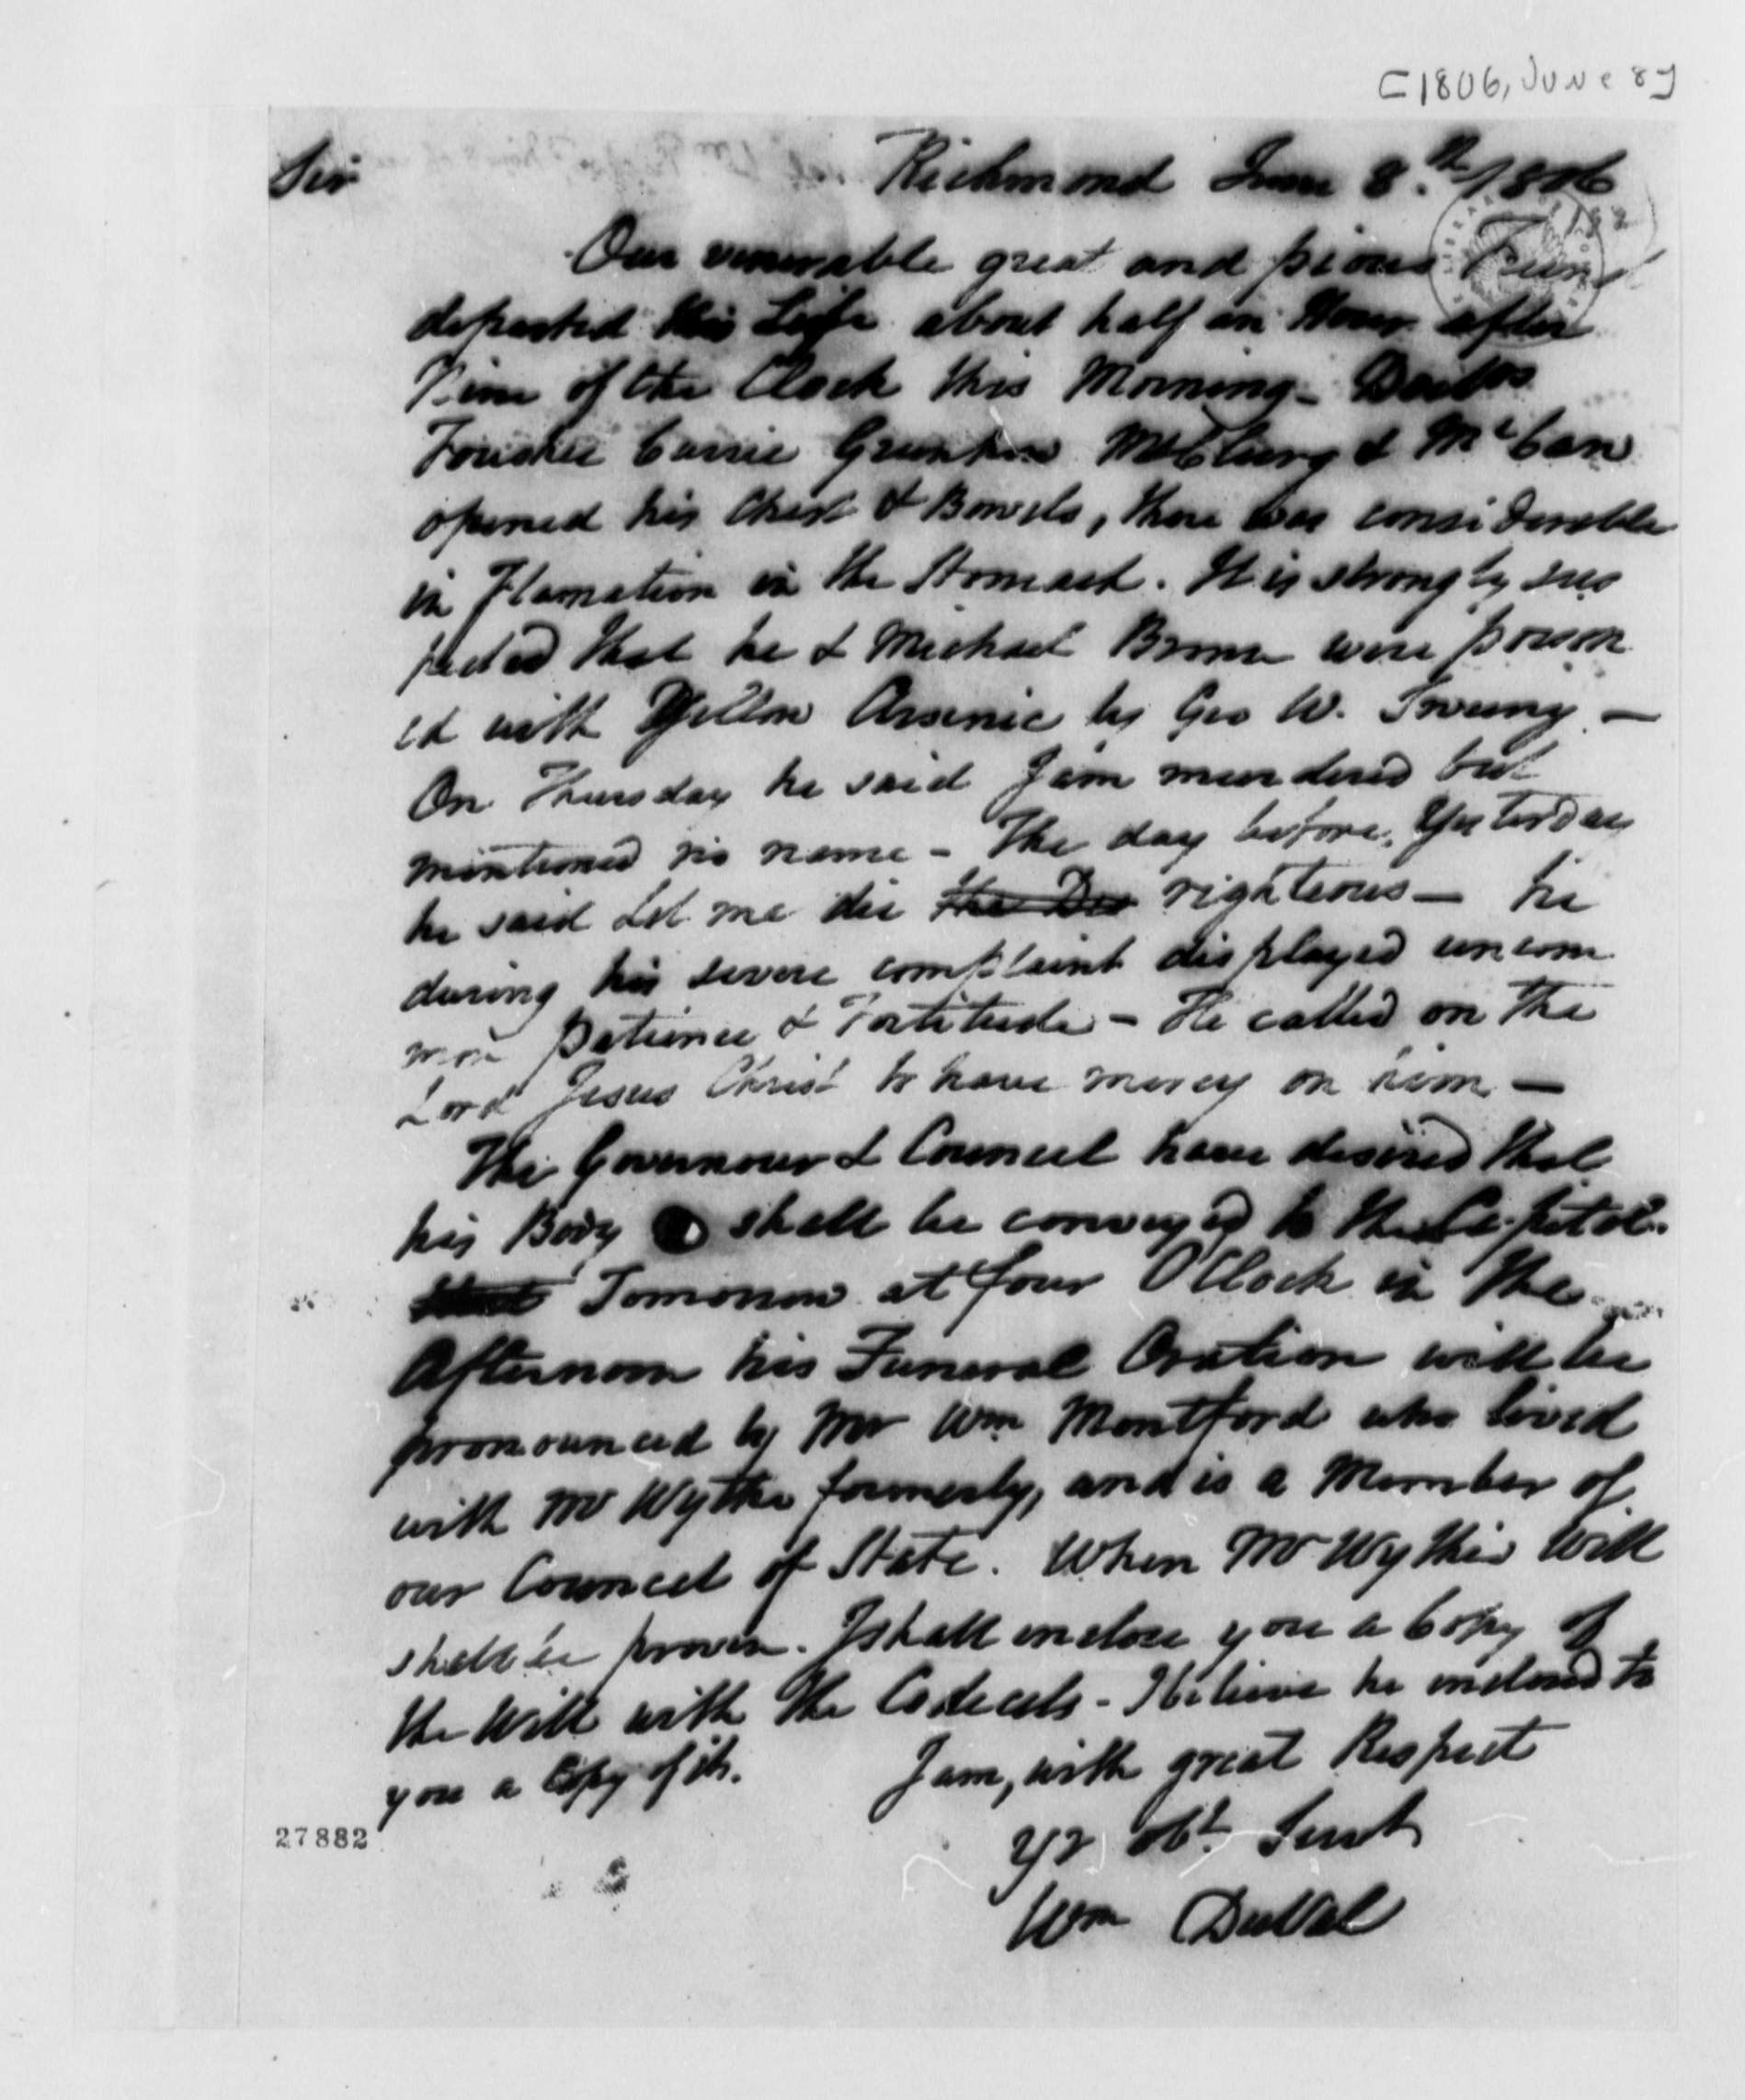 [1806, June 8]
Sir Richmond June 8.th 1806
Our venerable great and pious Friend
departed this Life about half an Hour after
Nine of the Clock this Morning - Doctors
Foushee Currie Greenhow McClurg & McCaw
opened his Chest & Bowels, there was considerable
in Flamation in the Stomach. It is strongly sus
pected that he & Michael Brown were poison
ed with Yellow Arsenic by Geo W. Sweeny -
On Thursday he said I am murdered but
mentioned no name - The day before, Yesterday
he said Let me die the righteous - he
during his severe complaint displayed uncom
mon patience & Fortitude - He called on the
Lord Jesus Christ to have mercy on him -
The Governour & Council have desired that
his Body shall be conveyed to the Capitol.
Tomorrow at four O'Clock in the
Afternoon his Funeral Oration will be
pronounced by Mr Wm Montford who lived
with Mr Wythe formerly, and is a Member of
our Council of State. When Mr Wythes Will
shall be proven. I shall enclose you a Copy of
the Will with the Codecels - I believe he enclosed to
you a Copy of it. I am, with great Respect
27882
Yr Obt Servt
Wm DuVal